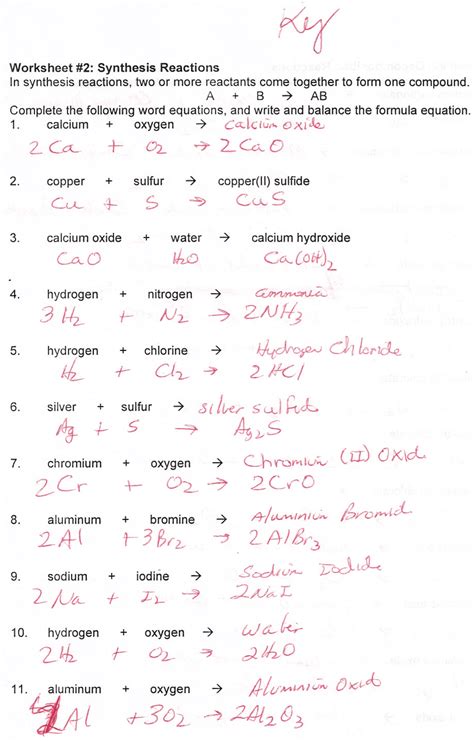 Key
Worksheet #2: Synthesis Reactions
In synthesis reactions, two or more reactants come together to form one compound.
A + B → AB
Complete the following word equations, and write and balance the formula equation.
1. calcium + oxygen → Calcium oxide
2 Ca + O2 → 2 CaO
2. copper + sulfur → copper(II) sulfide
Cu + S → CuS
3. calcium oxide + water → calcium hydroxide
CaO H2O Ca(OH)2
4. hydrogen + nitrogen → ammonia
3 H2 + N2 → 2NH3
5. hydrogen + chlorine → Hydrogen Chloride
H2 + Cl2 → 2 HCl
6. silver + sulfur → silver sulfide
Ag + S → Ag2S
7. chromium + oxygen → Chromium (II) Oxid
2 Cr + O2 → 2CrO
8. aluminum + bromine → Aluminium Bromid
2Al +3Br2 → 2 AlBr3
9. sodium + iodine → Sodium Iodide
2 Na + I2 → 2NaI
10. hydrogen + oxygen → water
2H2 + O2 → 2H2O
11. aluminum + oxygen → Aluminium Oxid
Al +3O2 → 2Al2O3